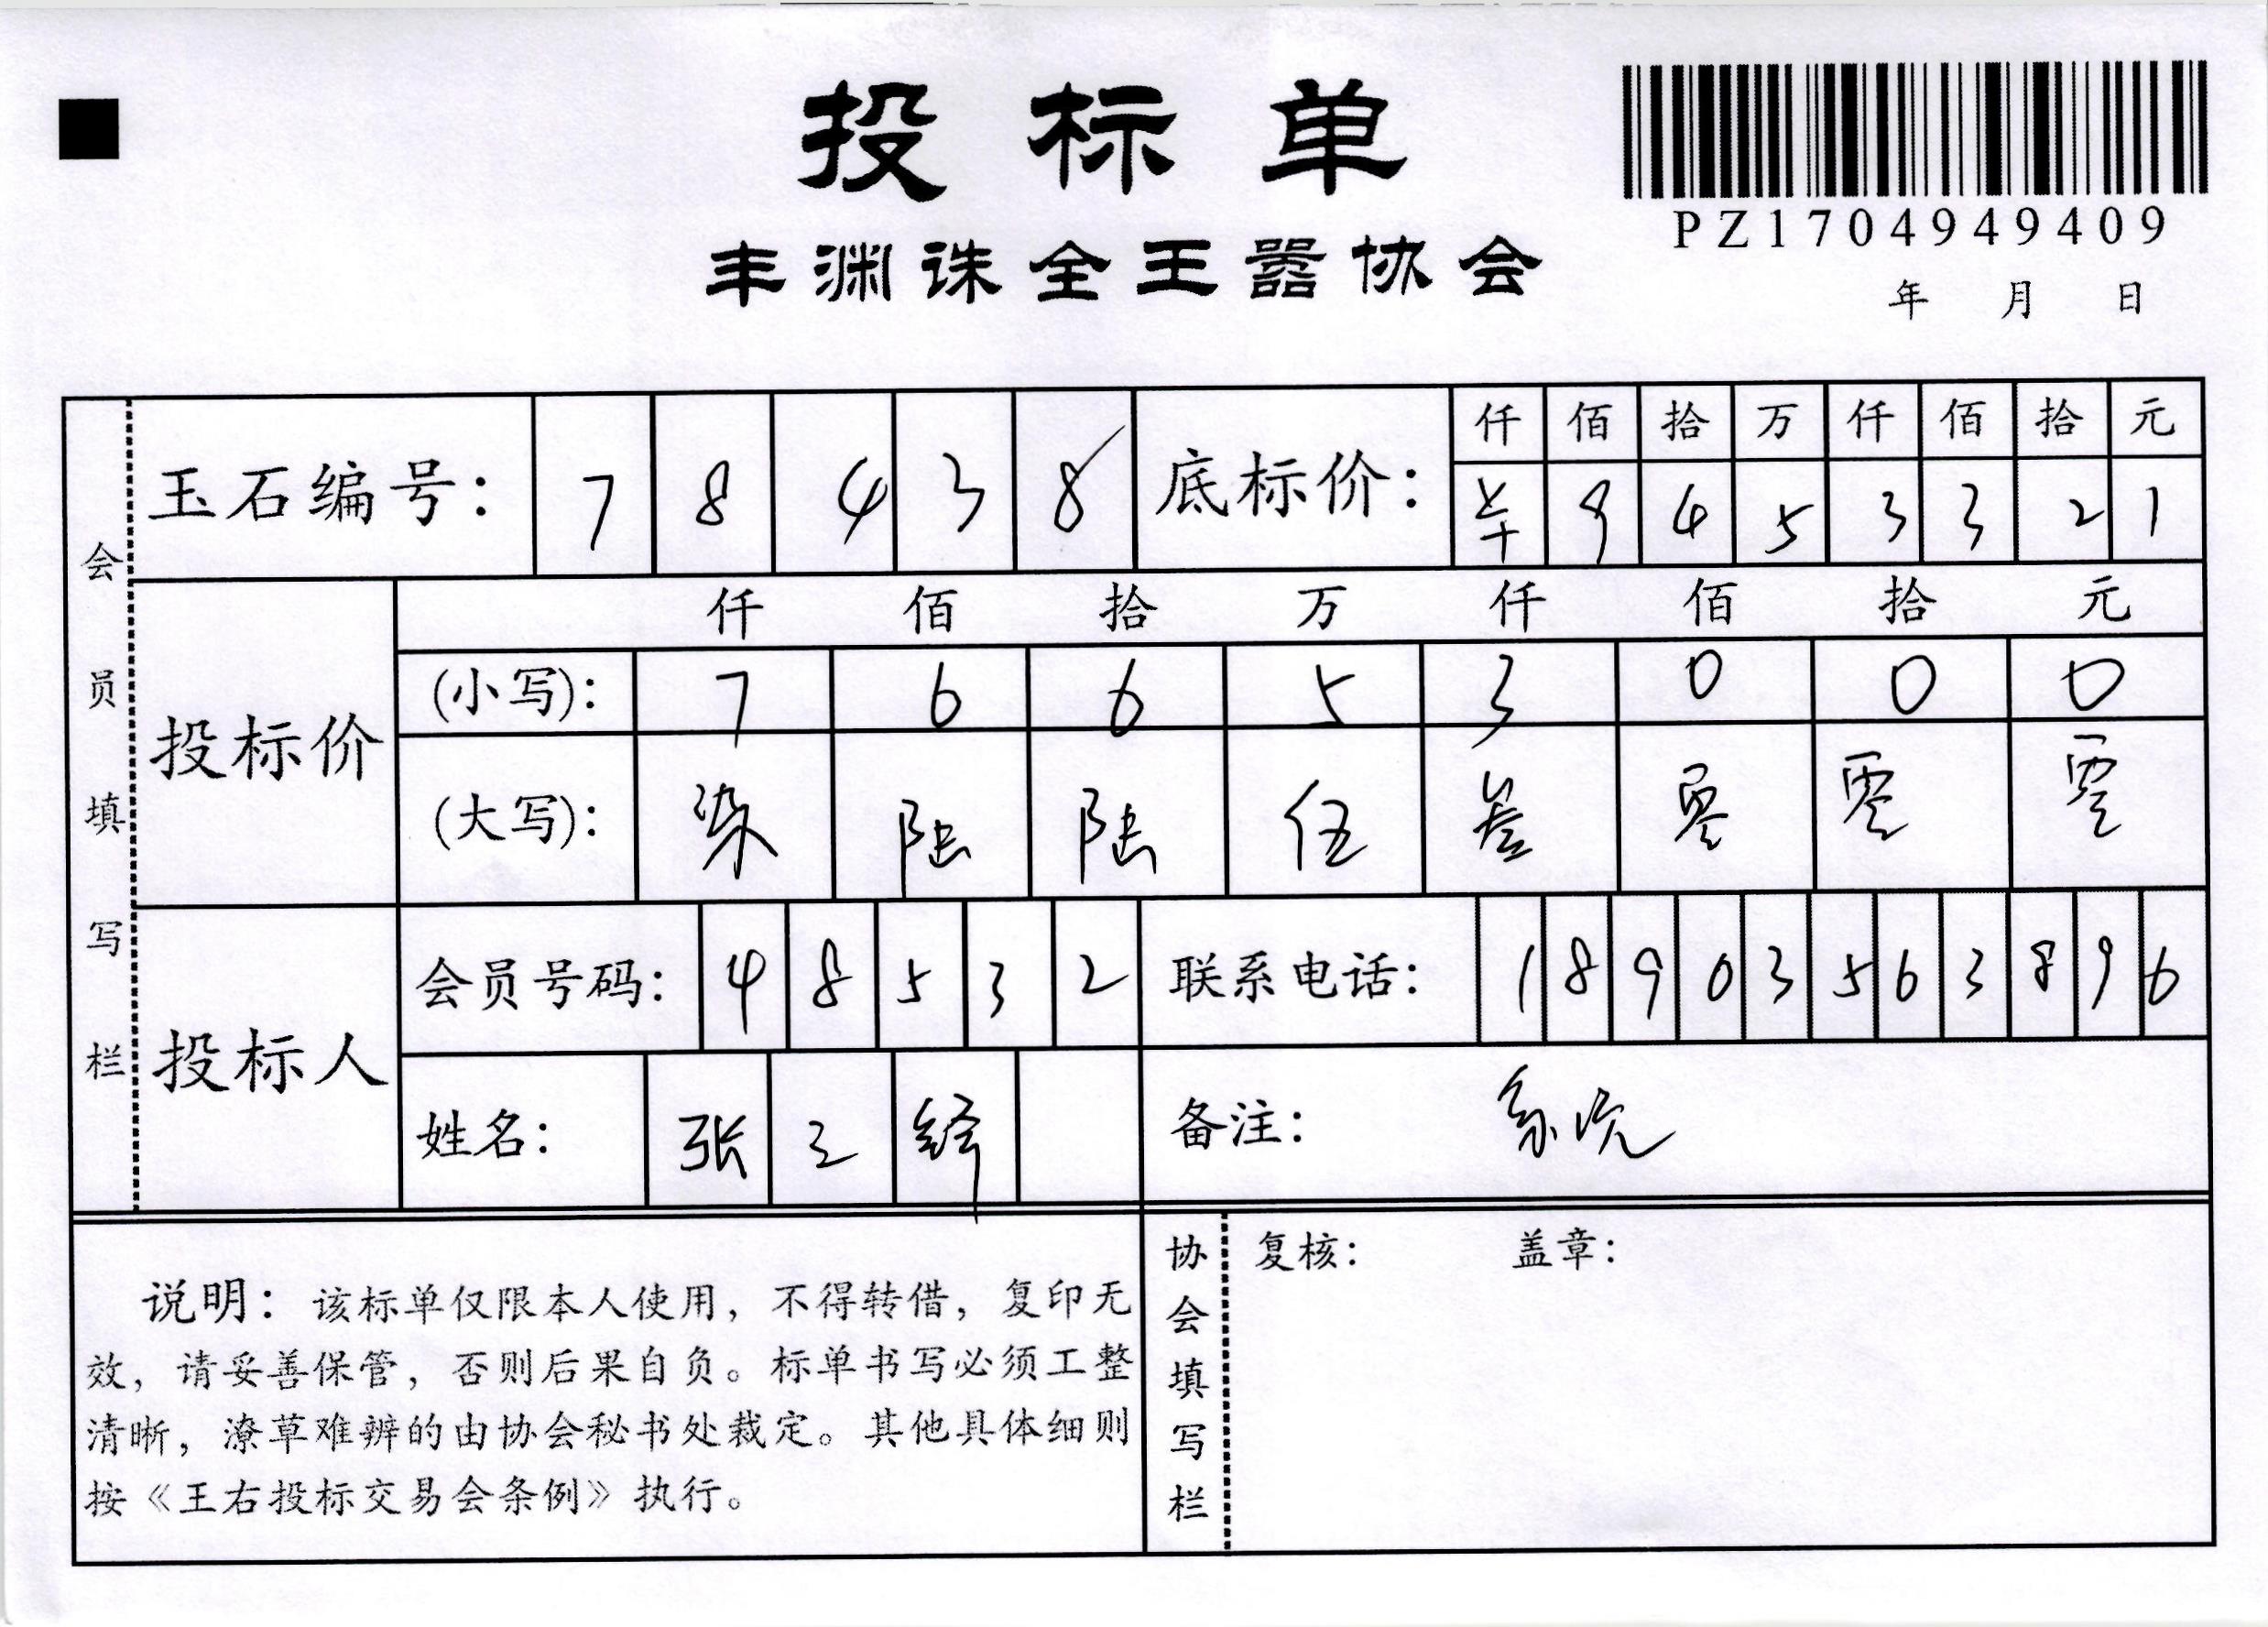 投标单
PZ1704949409
丰渊诛全王嚣协会
年 月 日
会员填写栏
玉石编号： 7 8 4 3 8
底标价： 仟 佰 拾 万 仟 佰 拾 元
9 4 5 3 3 2 1
投标价 仟 佰 拾 万 仟 佰 拾 元
(小写)： 7 6 6 5 3 0 0 0
(大写)： 柒 陆 陆 伍 叁 零 零 零
投标人
会员号码： 4 8 5 3 2
联系电话： 1 8 9 0 3 5 6 3 8 9 6
姓名： 张 王 绎
备注：
说明：该标单仅限本人使用，不得转借，复印无
效，请妥善保管，否则后果自负。标单书写必须工整
清晰，潦草难辨的由协会秘书处裁定。其他具体细则
按《王右投标交易会条例》执行。
协会填写栏
复核： 盖章：